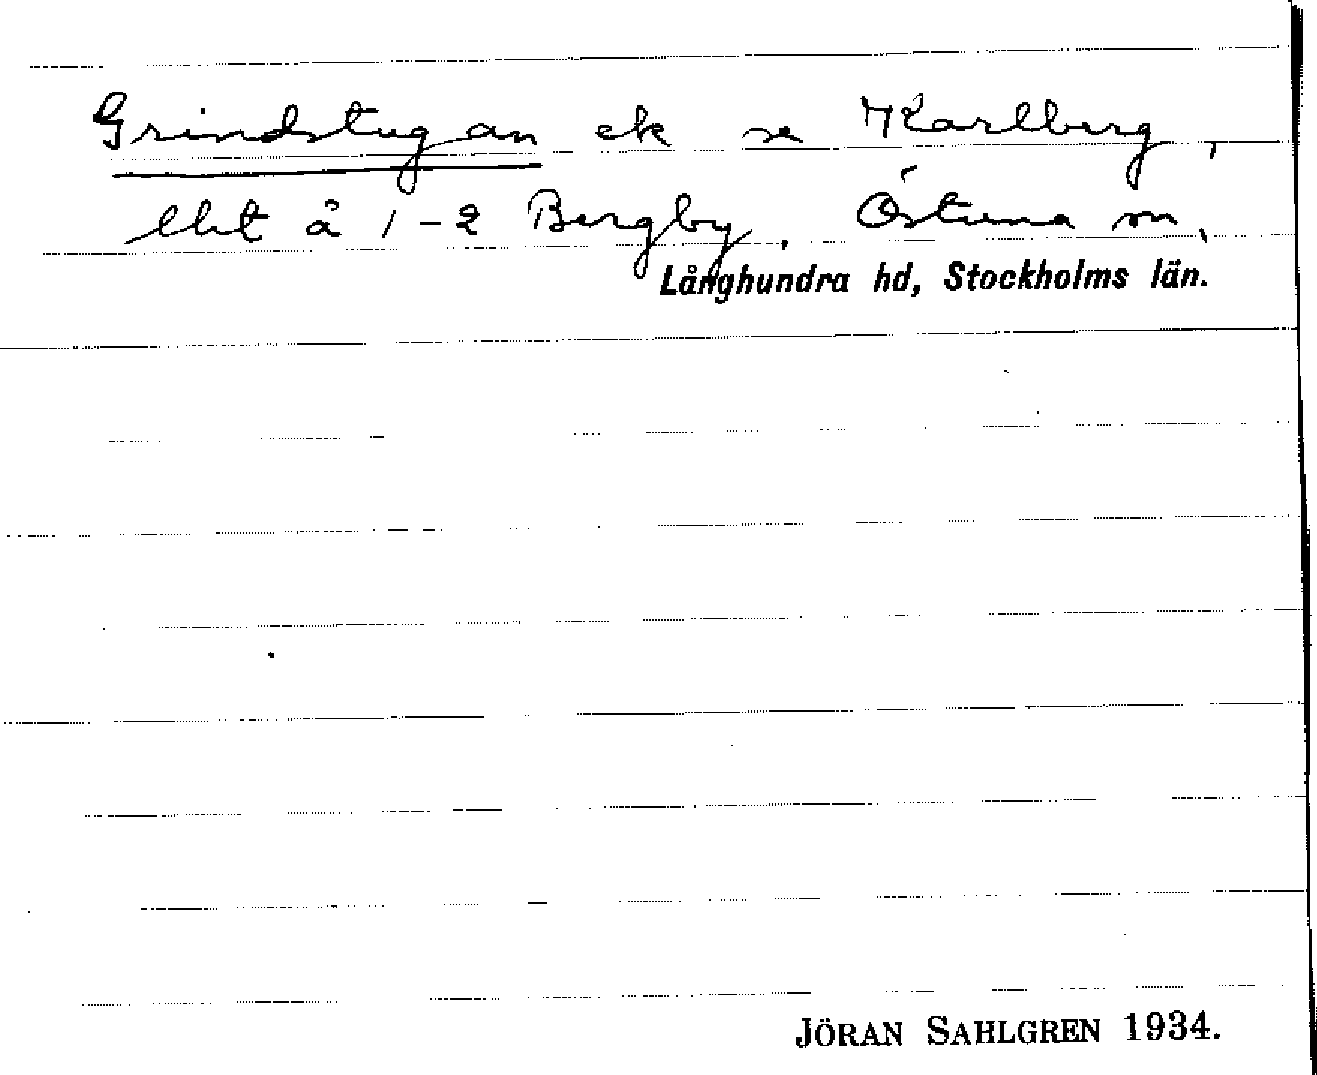 Grindstugan ek se Karlberg,
lht å 1-2 Bergby. Östuna sn,
Långhundra hd, Stockholms län.
JÖRAN SAHLGREN 1934.